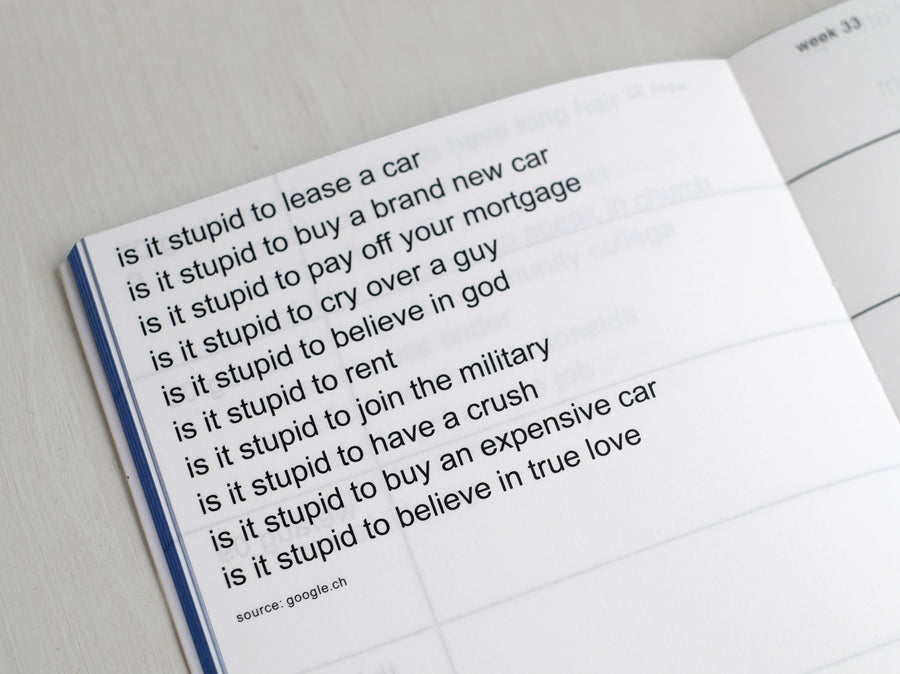 week 33
is it stupid to lease a car
is it stupid to buy a brand new car
is it stupid to pay off your mortgage
is it stupid to cry over a guy
is it stupid to believe in god
is it stupid to rent
is it stupid to join the military
is it stupid to have a crush
is it stupid to buy an expensive car
is it stupid to believe in true love
source: google.ch